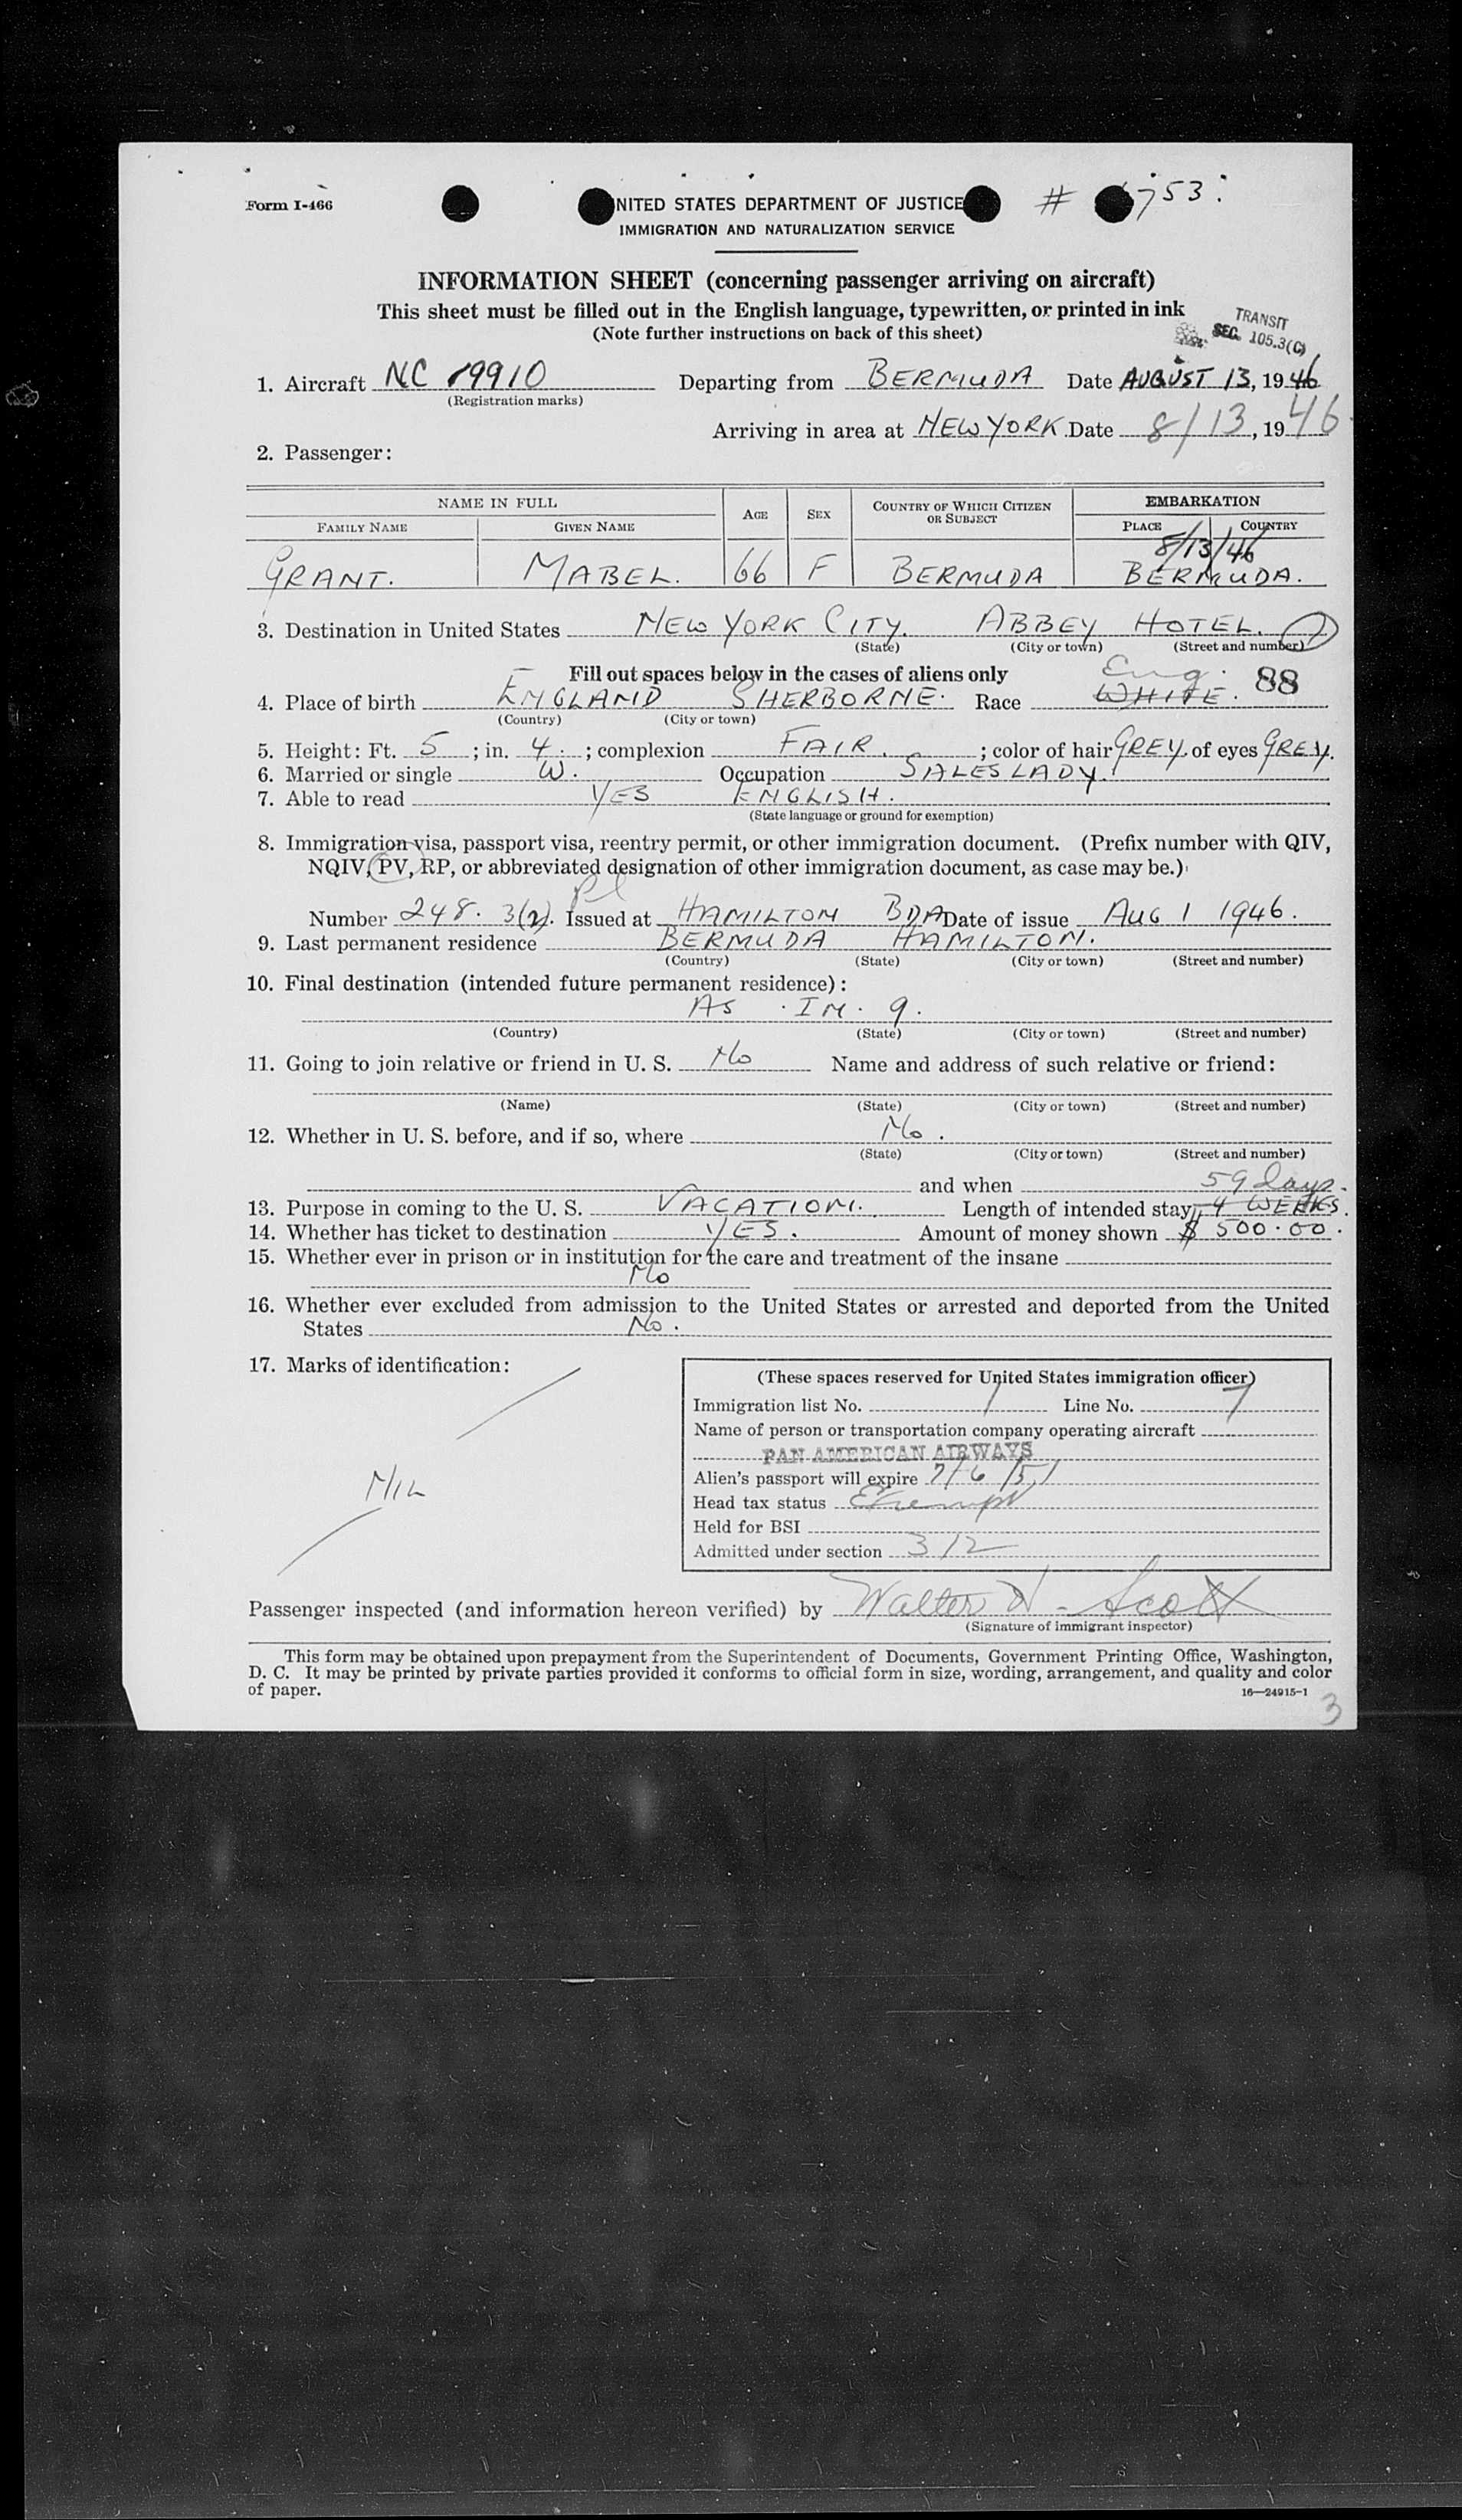 Form I-466
NITED STATES DEPARTMENT OF JUSTICE # 753
IMMIGRATION AND NATURALIZATION SERVICE
INFORMATION SHEET (concerning passenger arriving on aircraft)
This sheet must be filled out in the English language, typewritten, or printed in ink
(Note further instructions on back of this sheet)
TRANSIT
SEC. 105.3(C)
1. Aircraft NC 19910 Departing from BERMUDA Date AUGUST 13, 1946
(Registration marks)
Arriving in area at NEW YORK. Date 8/13, 1946
2. Passenger:
NAME IN FULL AGE SEX COUNTRY OF WHICH CITIZEN OR SUBJECT EMBARKATION
FAMILY NAME GIVEN NAME PLACE COUNTRY
8/13/46
GRANT. MABEL. 66 F BERMUDA BERMUDA.
3. Destination in United States NEW YORK CITY. ABBEY HOTEL.
(State) (City or town) (Street and number)
Fill out spaces below in the cases of aliens only Eng.
4. Place of birth ENGLAND SHERBORNE. Race WHITE. 88
(Country) (City or town)
5. Height: Ft. 5; in. 4.; complexion FAIR.; color of hair GREY. of eyes GREY.
6. Married or single W. Occupation SALESLADY.
7. Able to read YES ENGLISH.
(State language or ground for exemption)
8. Immigration visa, passport visa, reentry permit, or other immigration document. (Prefix number with QIV,
NQIV, PV, RP, or abbreviated designation of other immigration document, as case may be.)
Pl
Number 248. 3(2). Issued at HAMILTON BDA Date of issue AUG 1 1946.
9. Last permanent residence BERMUDA HAMILTON.
(Country) (State) (City or town) (Street and number)
10. Final destination (intended future permanent residence):
AS . IN . 9.
(Country) (State) (City or town) (Street and number)
11. Going to join relative or friend in U. S. No Name and address of such relative or friend:
(Name) (State) (City or town) (Street and number)
12. Whether in U. S. before, and if so, where No.
(State) (City or town) (Street and number)
and when 59 days.
13. Purpose in coming to the U. S. VACATION. Length of intended stay 4 WEEKS.
14. Whether has ticket to destination YES. Amount of money shown $ 500.00.
15. Whether ever in prison or in institution for the care and treatment of the insane
No
16. Whether ever excluded from admission to the United States or arrested and deported from the United
States No.
17. Marks of identification:
NIL
(These spaces reserved for United States immigration officer)
Immigration list No. 1 Line No. 7
Name of person or transportation company operating aircraft
PAN AMERICAN AIRWAYS
Alien's passport will expire 7/6/51
Head tax status Exempt
Held for BSI
Admitted under section 3/2
Passenger inspected (and information hereon verified) by Walter W. Scott
(Signature of immigrant inspector)
This form may be obtained upon prepayment from the Superintendent of Documents, Government Printing Office, Washington,
D. C. It may be printed by private parties provided it conforms to official form in size, wording, arrangement, and quality and color
of paper.
16—24915-1
3